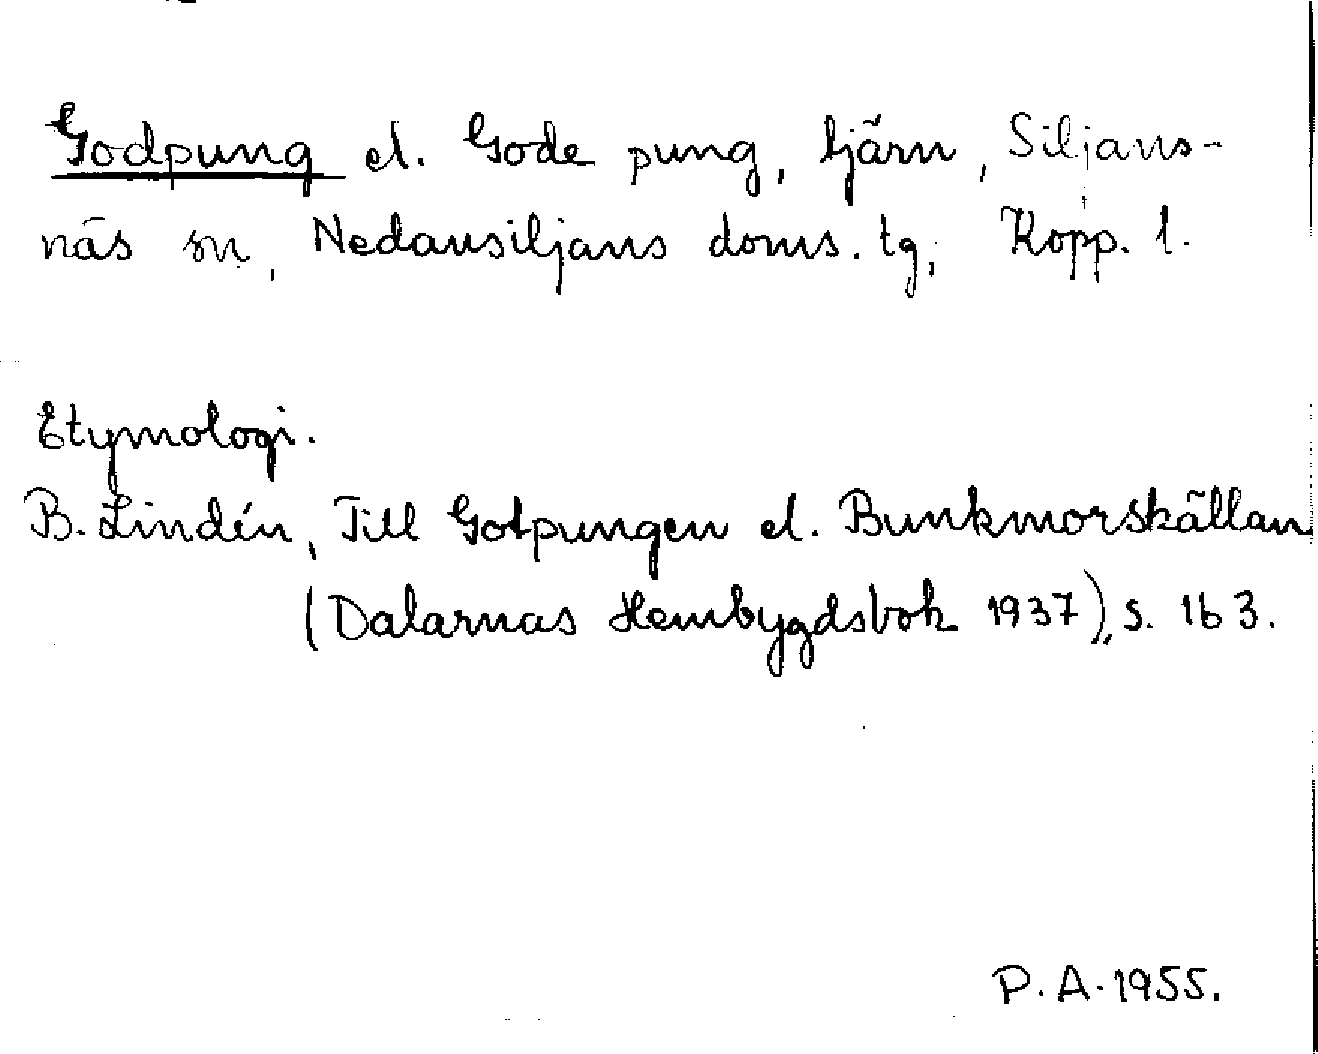 Godpung el. Gode pung, tjärn, Siljans-
näs sn, Nedansiljans doms. tg, Kopp. l.
Etymologi.
B. Lindén, Till Gotpungen el. Bunkmorskällan
(Dalarnas Hembygdsbok 1937), s. 163.
P. A. 1955.